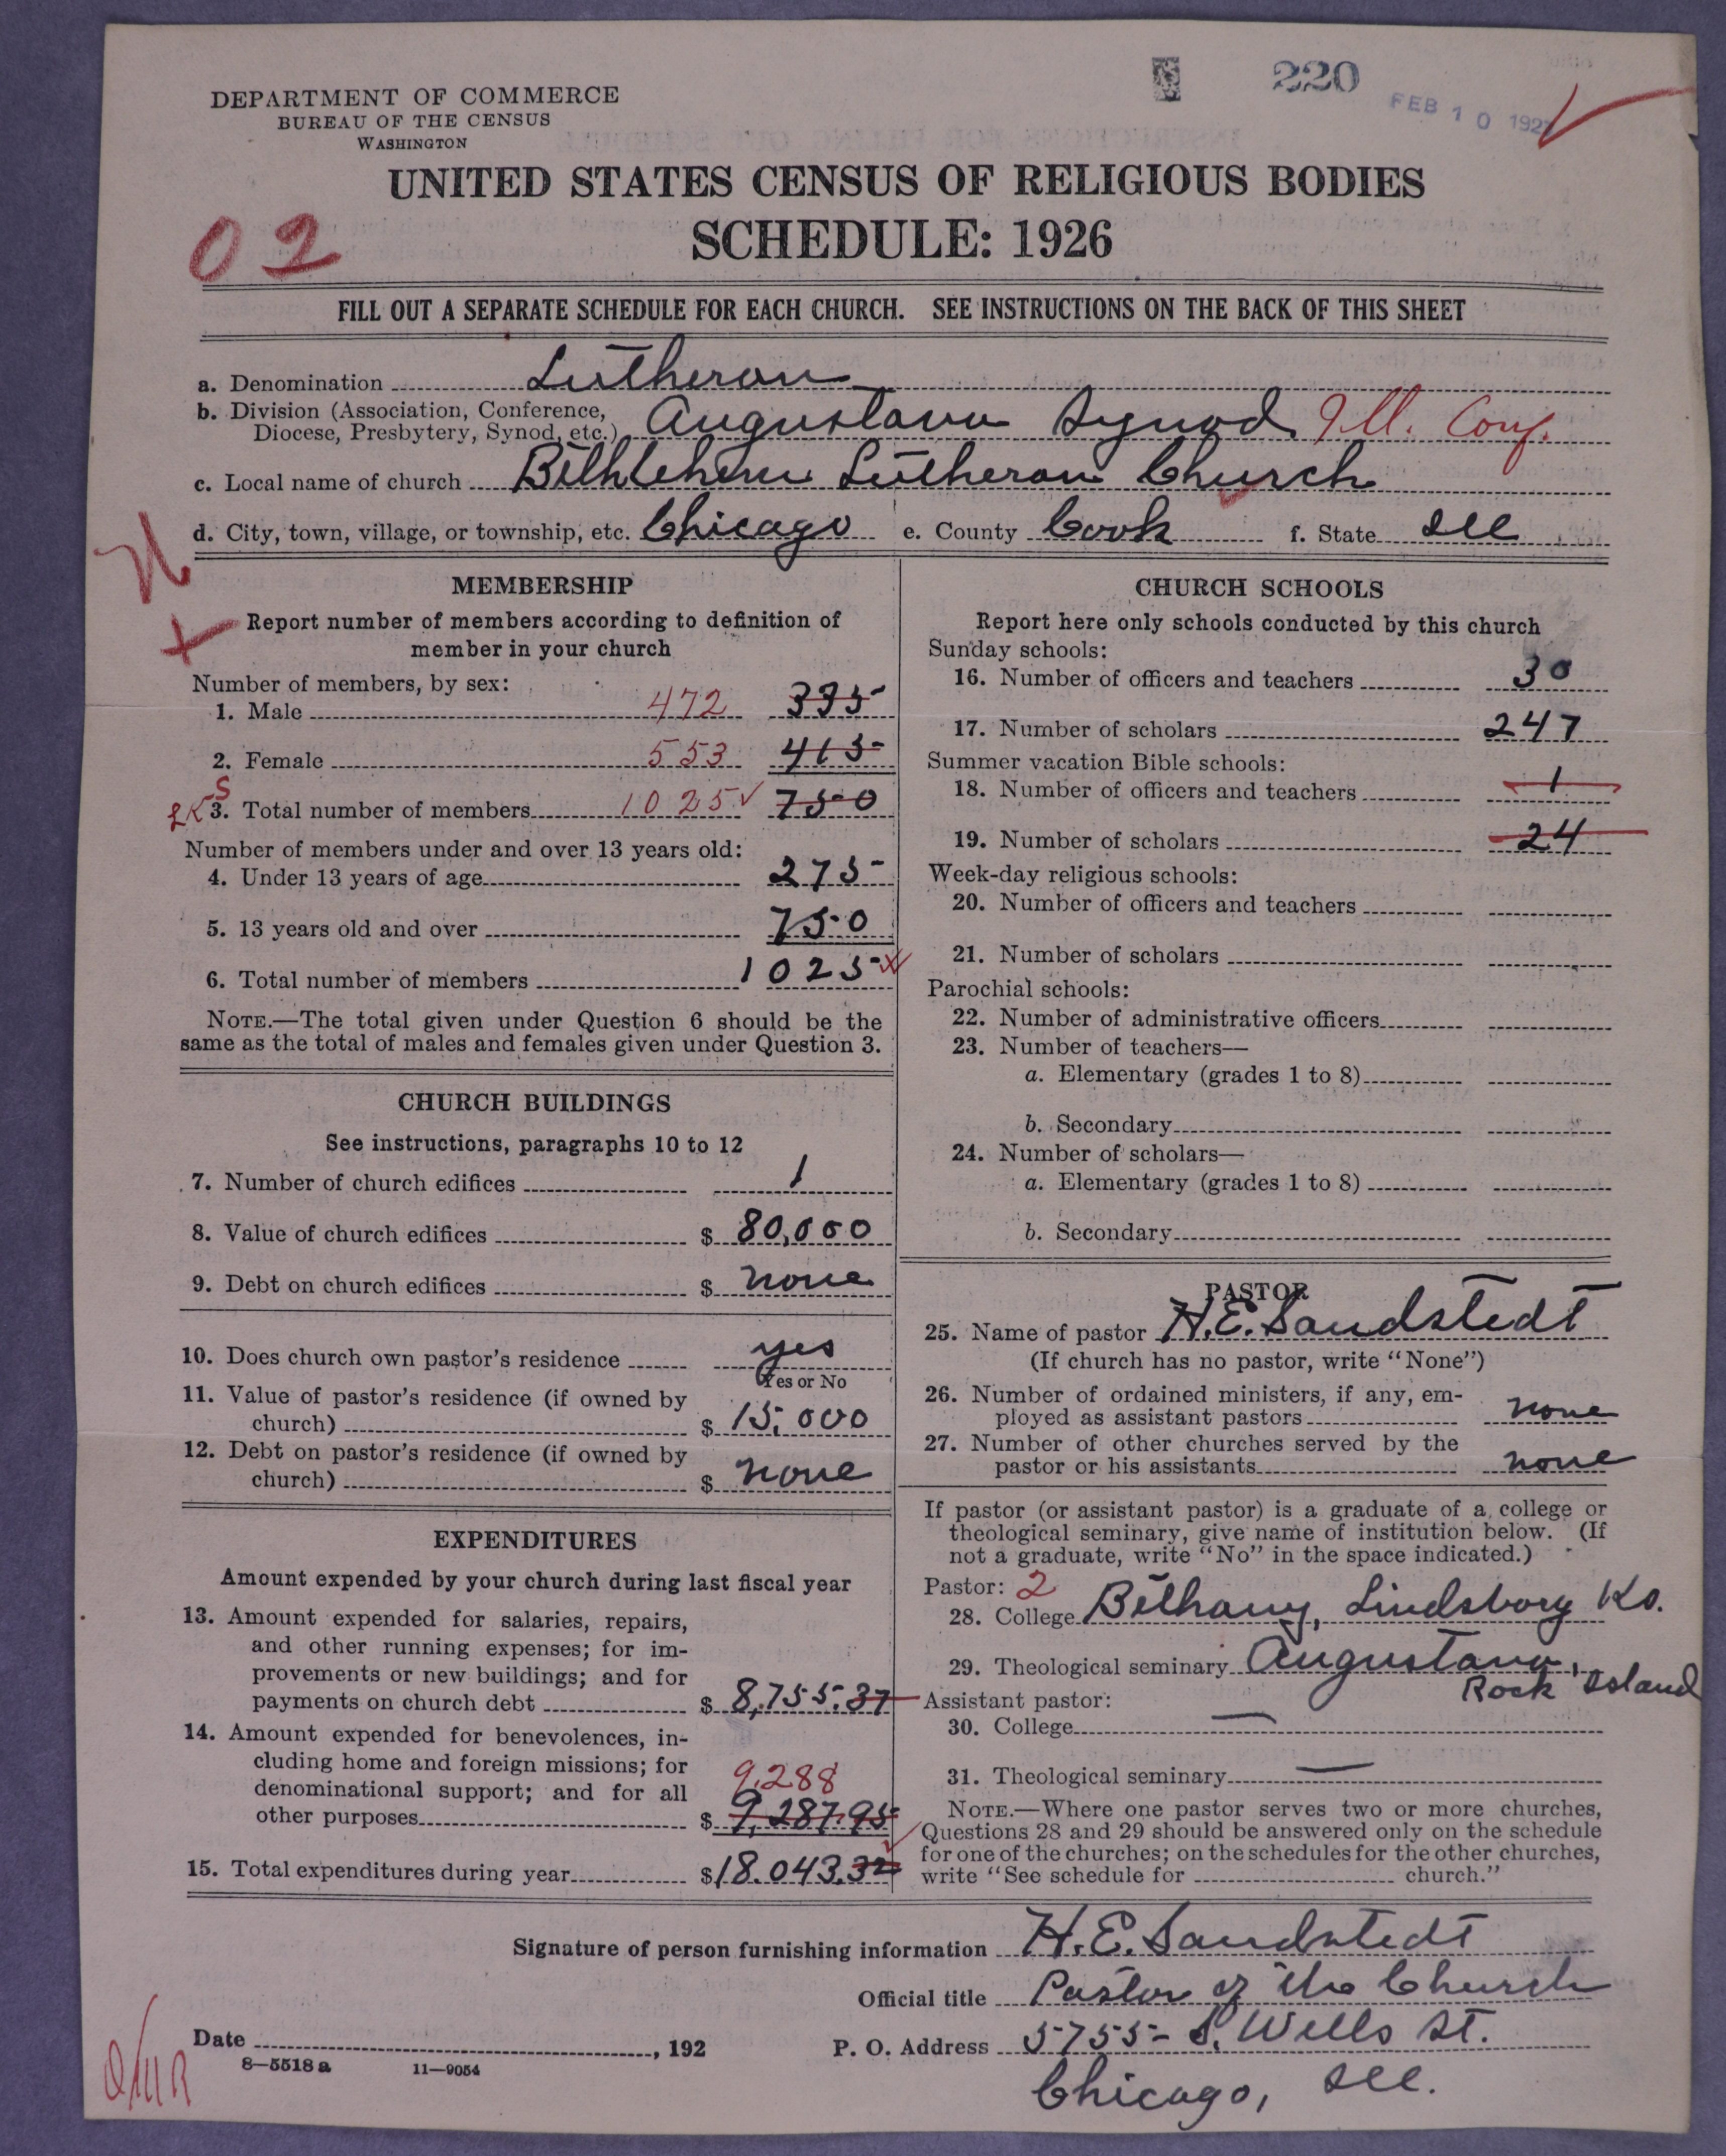 220
FEB 10 192
DEPARTMENT OF COMMERCE
BUREAU OF THE CENSUS
WASHINGTON
UNITED STATES CENSUS OF RELIGIOUS BODIES
02
SCHEDULE: 1926
FILL OUT A SEPARATE SCHEDULE FOR EACH CHURCH. SEE INSTRUCTIONS ON THE BACK OF THIS SHEET
a. Denomination Lutheran
b. Division (Association, Conference,
Diocese, Presbytery, Synod, etc.) Augustana Synod Ill. Conf.
c. Local name of church Bethlehem Lutheran Church
d. City, town, village, or township, etc. Chicago e. County Cook f. State Ill
MEMBERSHIP
Report number of members according to definition of
member in your church
Number of members, by sex:
1. Male 472 335
2. Female 553 415
3. Total number of members 1025 750
Number of members under and over 13 years old:
4. Under 13 years of age 275
5. 13 years old and over 750
6. Total number of members 1025
NOTE.—The total given under Question 6 should be the
same as the total of males and females given under Question 3.
CHURCH BUILDINGS
See instructions, paragraphs 10 to 12
7. Number of church edifices 1
8. Value of church edifices $ 80,000
9. Debt on church edifices $ none
10. Does church own pastor's residence yes
Yes or No
11. Value of pastor's residence (if owned by
church) $ 15,000
12. Debt on pastor's residence (if owned by
church) $ none
EXPENDITURES
Amount expended by your church during last fiscal year
13. Amount expended for salaries, repairs,
and other running expenses; for im-
provements or new buildings; and for
payments on church debt $ 8,755.37
14. Amount expended for benevolences, in-
cluding home and foreign missions; for
denominational support; and for all
9,288
other purposes $ 9,287.95
15. Total expenditures during year $ 18.043.32
CHURCH SCHOOLS
Report here only schools conducted by this church
Sunday schools:
16. Number of officers and teachers 30
17. Number of scholars 247
Summer vacation Bible schools:
18. Number of officers and teachers 1
19. Number of scholars 24
Week-day religious schools:
20. Number of officers and teachers
21. Number of scholars
Parochial schools:
22. Number of administrative officers
23. Number of teachers—
a. Elementary (grades 1 to 8)
b. Secondary
24. Number of scholars—
a. Elementary (grades 1 to 8)
b. Secondary
PASTOR
25. Name of pastor H.E. Sandstedt
(If church has no pastor, write "None")
26. Number of ordained ministers, if any, em-
ployed as assistant pastors none
27. Number of other churches served by the
pastor or his assistants none
If pastor (or assistant pastor) is a graduate of a college or
theological seminary, give name of institution below. (If
not a graduate, write "No" in the space indicated.)
Pastor: 2
28. College Bethany, Lindsborg Ks.
29. Theological seminary Augustana,
Rock Island
Assistant pastor:
30. College —
31. Theological seminary —
NOTE.—Where one pastor serves two or more churches,
Questions 28 and 29 should be answered only on the schedule
for one of the churches; on the schedules for the other churches,
write "See schedule for church."
Signature of person furnishing information H.E. Sandstedt
Official title Pastor of the Church
Date , 192
P. O. Address 5755 S. Wells St.
Chicago, Ill.
8—5518 a 11—9054